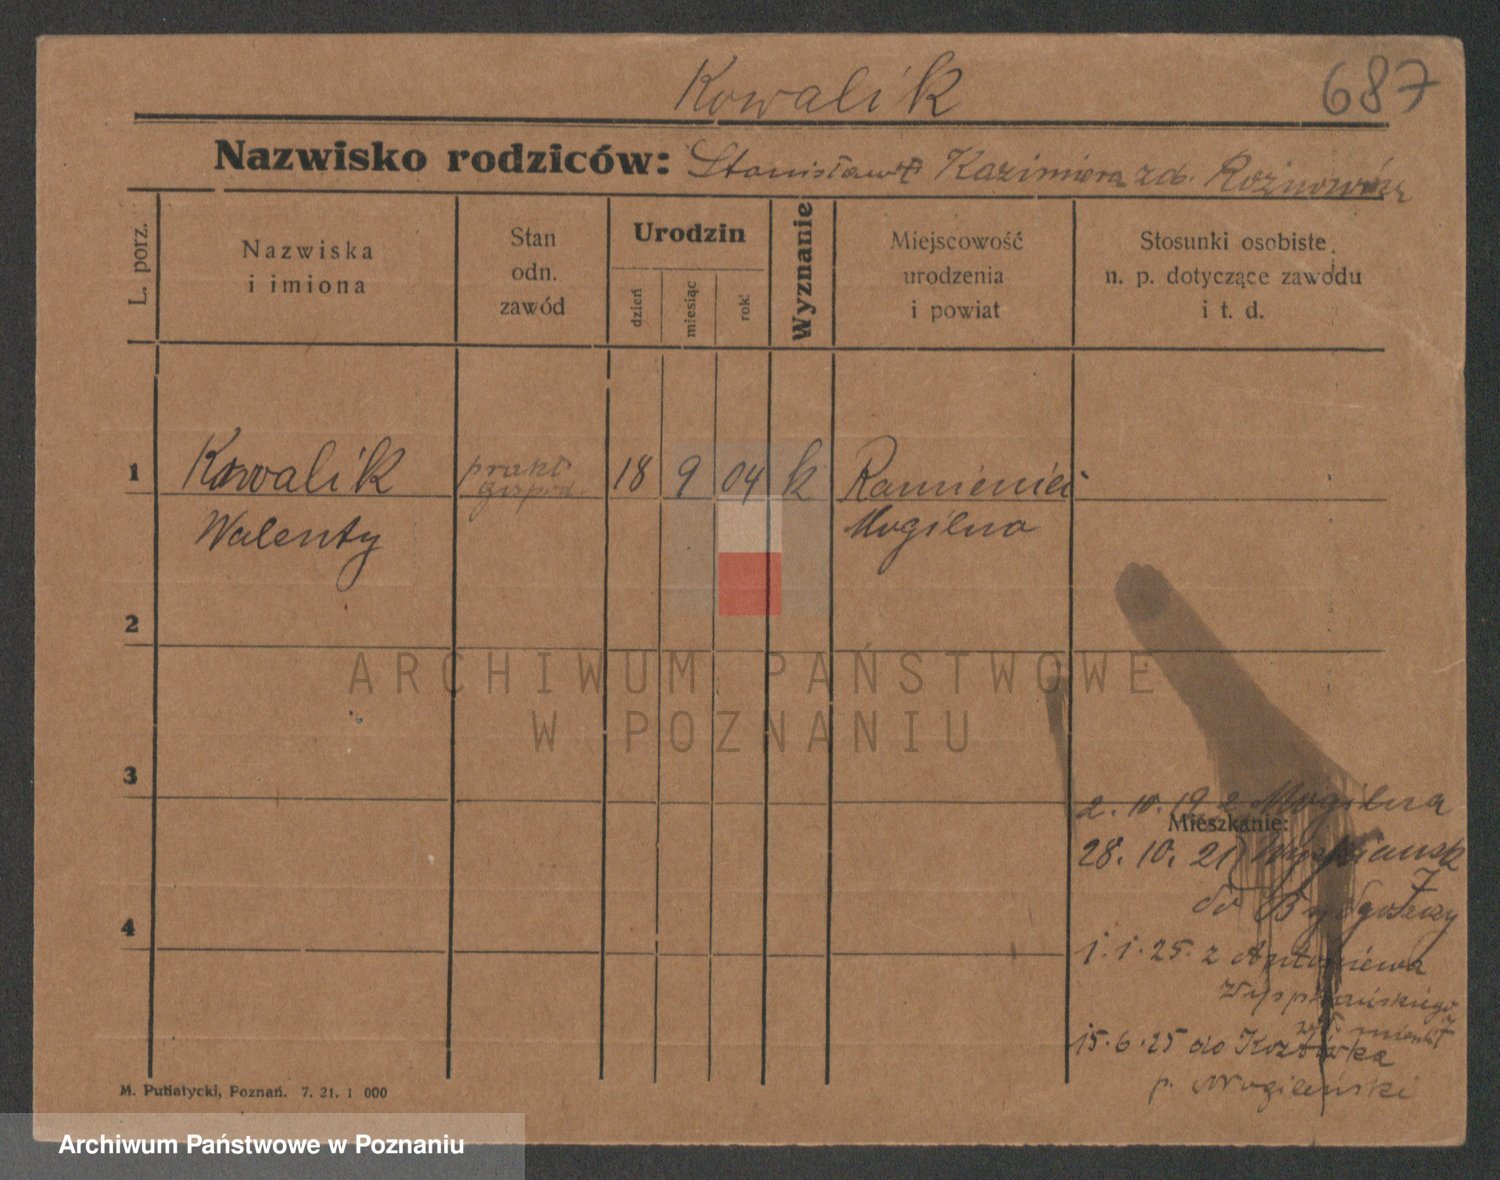 Kowalik
687
Nazwisko rodziców: Stanisław Kazimiera zd.
L. porz.
Nazwiska
i imiona
Stan
odn.
zawód
Urodzin
dzień
miesiąc
rok
Wyznanie
Miejscowość
urodzenia
i powiat
Stosunki osobiste
n. p. dotyczące zawodu
i t. d.
1 Kowalik prakt. 18 9 04 k
gospod.
Walenty Mogilno
2
ARCHIWUM PAŃSTWOWE
W POZNANIU
3
2. 10. 19 z Mogilna
Mieszkanie:
28. 10. 21
7
do Bydgoszczy
4
1. 1. 25. z Antoniewa
Wyspiańskiego
7
15. 6. 25 do
p. Mogileński
M. Putiatycki, Poznań. 7. 21. 1 000
Archiwum Państwowe w Poznaniu